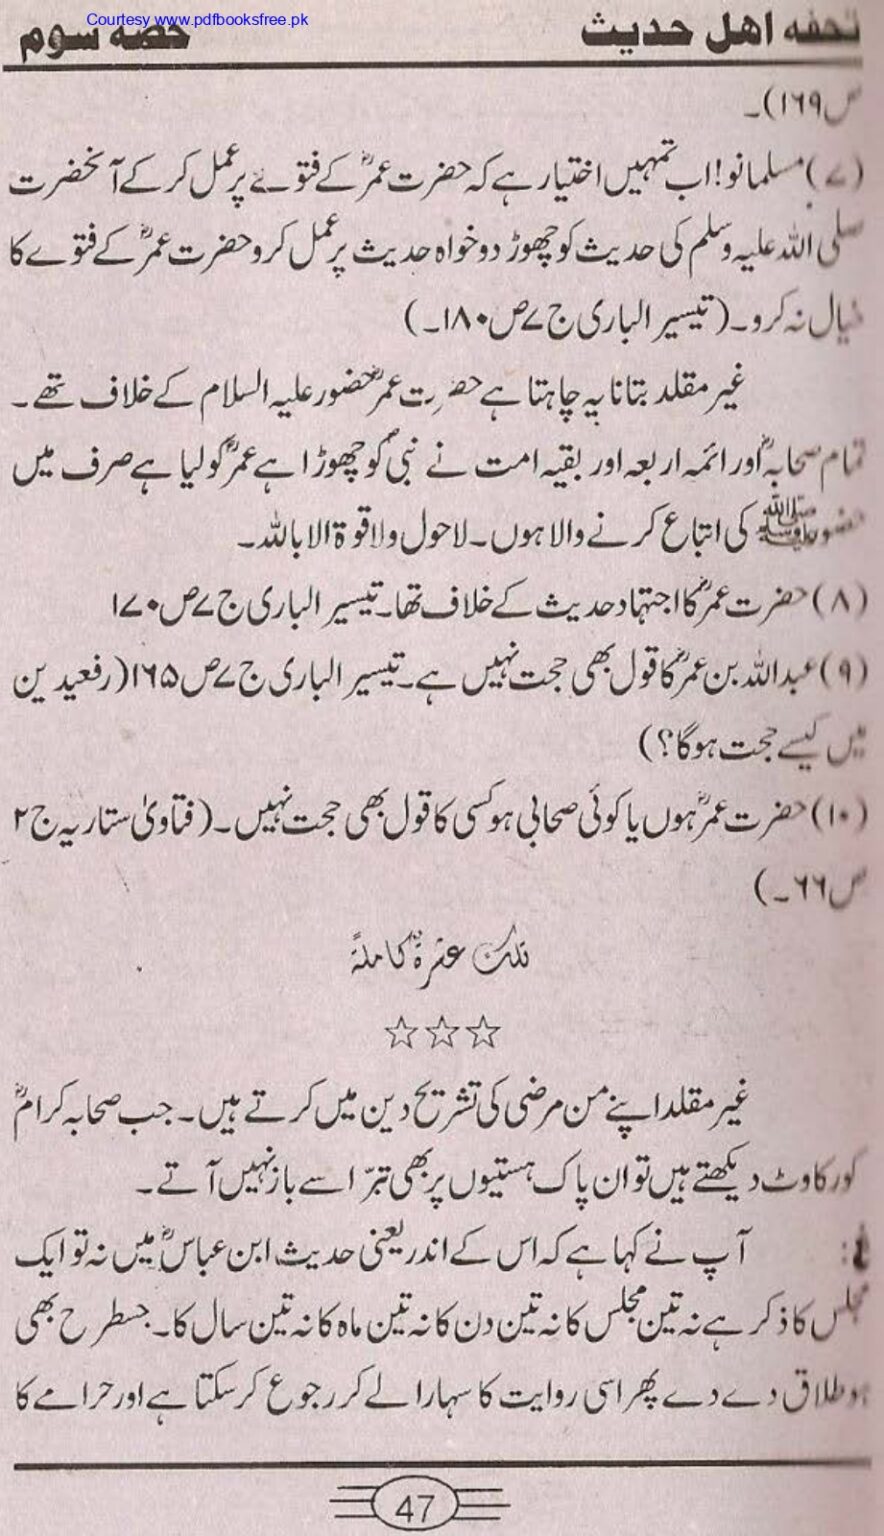 Courtesy www.pdfbooksfree.pk
تحفه اهل حدیث حصه سوم
ص۱۶۹)۔
(۷) مسلمانو! اب تمہیں اختیار ہے کہ حضرت عمرؓ کے فتوے پر عمل کر کے آنحضرت
صلی اللہ علیہ وسلم کی حدیث کو چھوڑ دو خواہ حدیث پر عمل کرو حضرت عمرؓ کے فتوے کا
خیال نہ کرو۔ (تیسیر الباری ج۷ ص۱۸۰۔)
غیر مقلد بتانا یہ چاہتا ہے حضرت عمرؓ حضور علیہ السلام کے خلاف تھے۔
تمام صحابہؓ اور ائمہ اربعہ اور بقیہ امت نے نبیؐ کو چھوڑا ہے عمرؓ کو لیا ہے صرف میں
حضورﷺ کی اتباع کرنے والا ہوں۔ لا حول ولا قوۃ الا باللہ۔
(۸) حضرت عمرؓ کا اجتہاد حدیث کے خلاف تھا۔ تیسیر الباری ج۷ ص۱۷۰
(۹) عبداللہ بن عمرؓ کا قول بھی حجت نہیں ہے۔ تیسیر الباری ج۷ ص۱۶۵ (رفعیدین
میں کیسے حجت ہوگا؟)
(۱۰) حضرت عمرؓ ہوں یا کوئی صحابی ہو کسی کا قول بھی حجت نہیں۔ (فتاویٰ ستاریہ ج۲
ص۶۶۔)
تلک عشرۃ کاملۃ
☆☆☆
غیر مقلد اپنے من مرضی کی تشریح دین میں کرتے ہیں۔ جب صحابہ کرامؓ
کو رکاوٹ دیکھتے ہیں تو ان پاک ہستیوں پر بھی تبرّا سے باز نہیں آتے۔
آپ نے کہا ہے کہ اس کے اندر یعنی حدیث ابن عباسؓ میں نہ تو ایک
مجلس کا ذکر ہے نہ تین مجلس کا نہ تین دن کا نہ تین ماہ کا نہ تین سال کا۔ جسطرح بھی
ہو طلاق دے دے پھر اسی روایت کا سہارا لے کر رجوع کر سکتا ہے اور حرامے کا
47